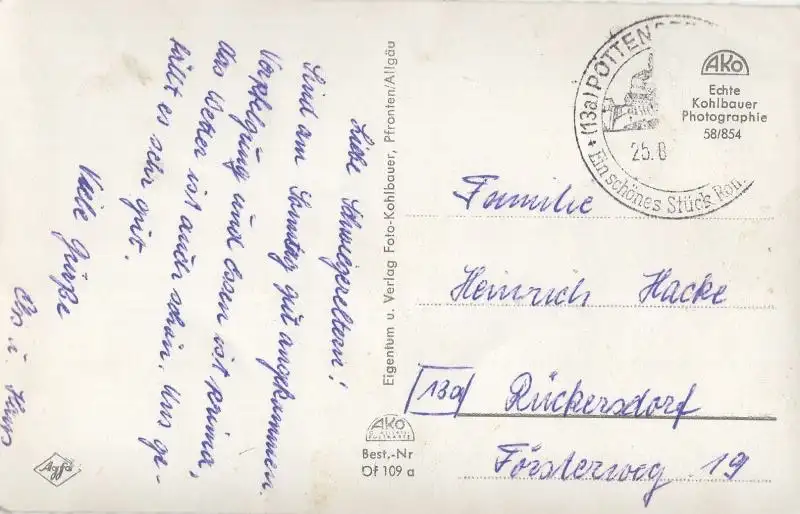 Liebe Schwiegereltern!
Sind am Sonntag gut angekommen.
Verpflegung und essen ist prima,
das Wetter ist auch schön. Uns ge-
fällt es sehr gut.
Viele Grüße
u. Hans
Eigentum u. Verlag Foto-Kohlbauer, Pfronten/Allgäu
AKO
Echte
Kohlbauer
Photographie
58/854
(13a) POTTEN
25.8
Ein schönes Stück
Familie
Heinrich Hacke
13a Rückersdorf
Försterweg 19
AKO
Best.-Nr
Öf 109 a
Agfa